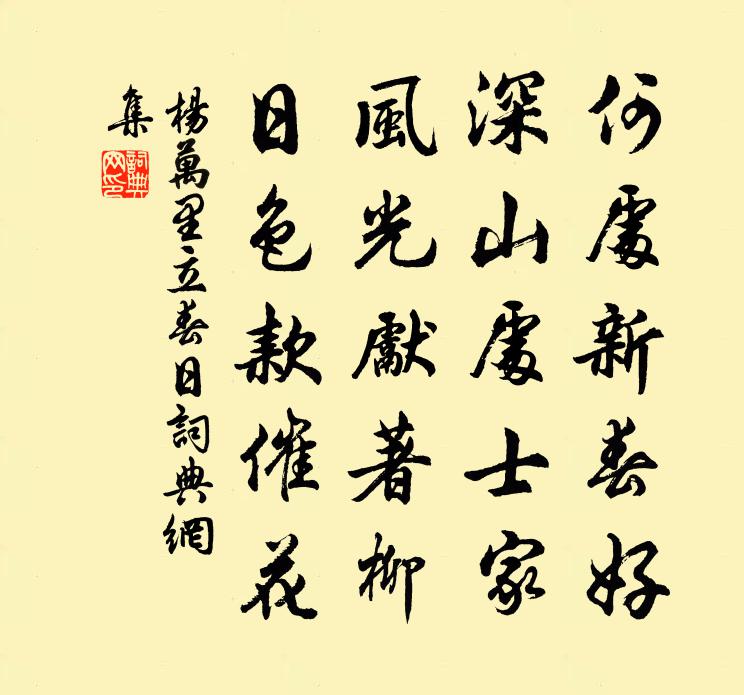 何處新春好
深山處士家
風光獻著柳
日色款催花
楊萬里立春日詞典網
集
詞典網印